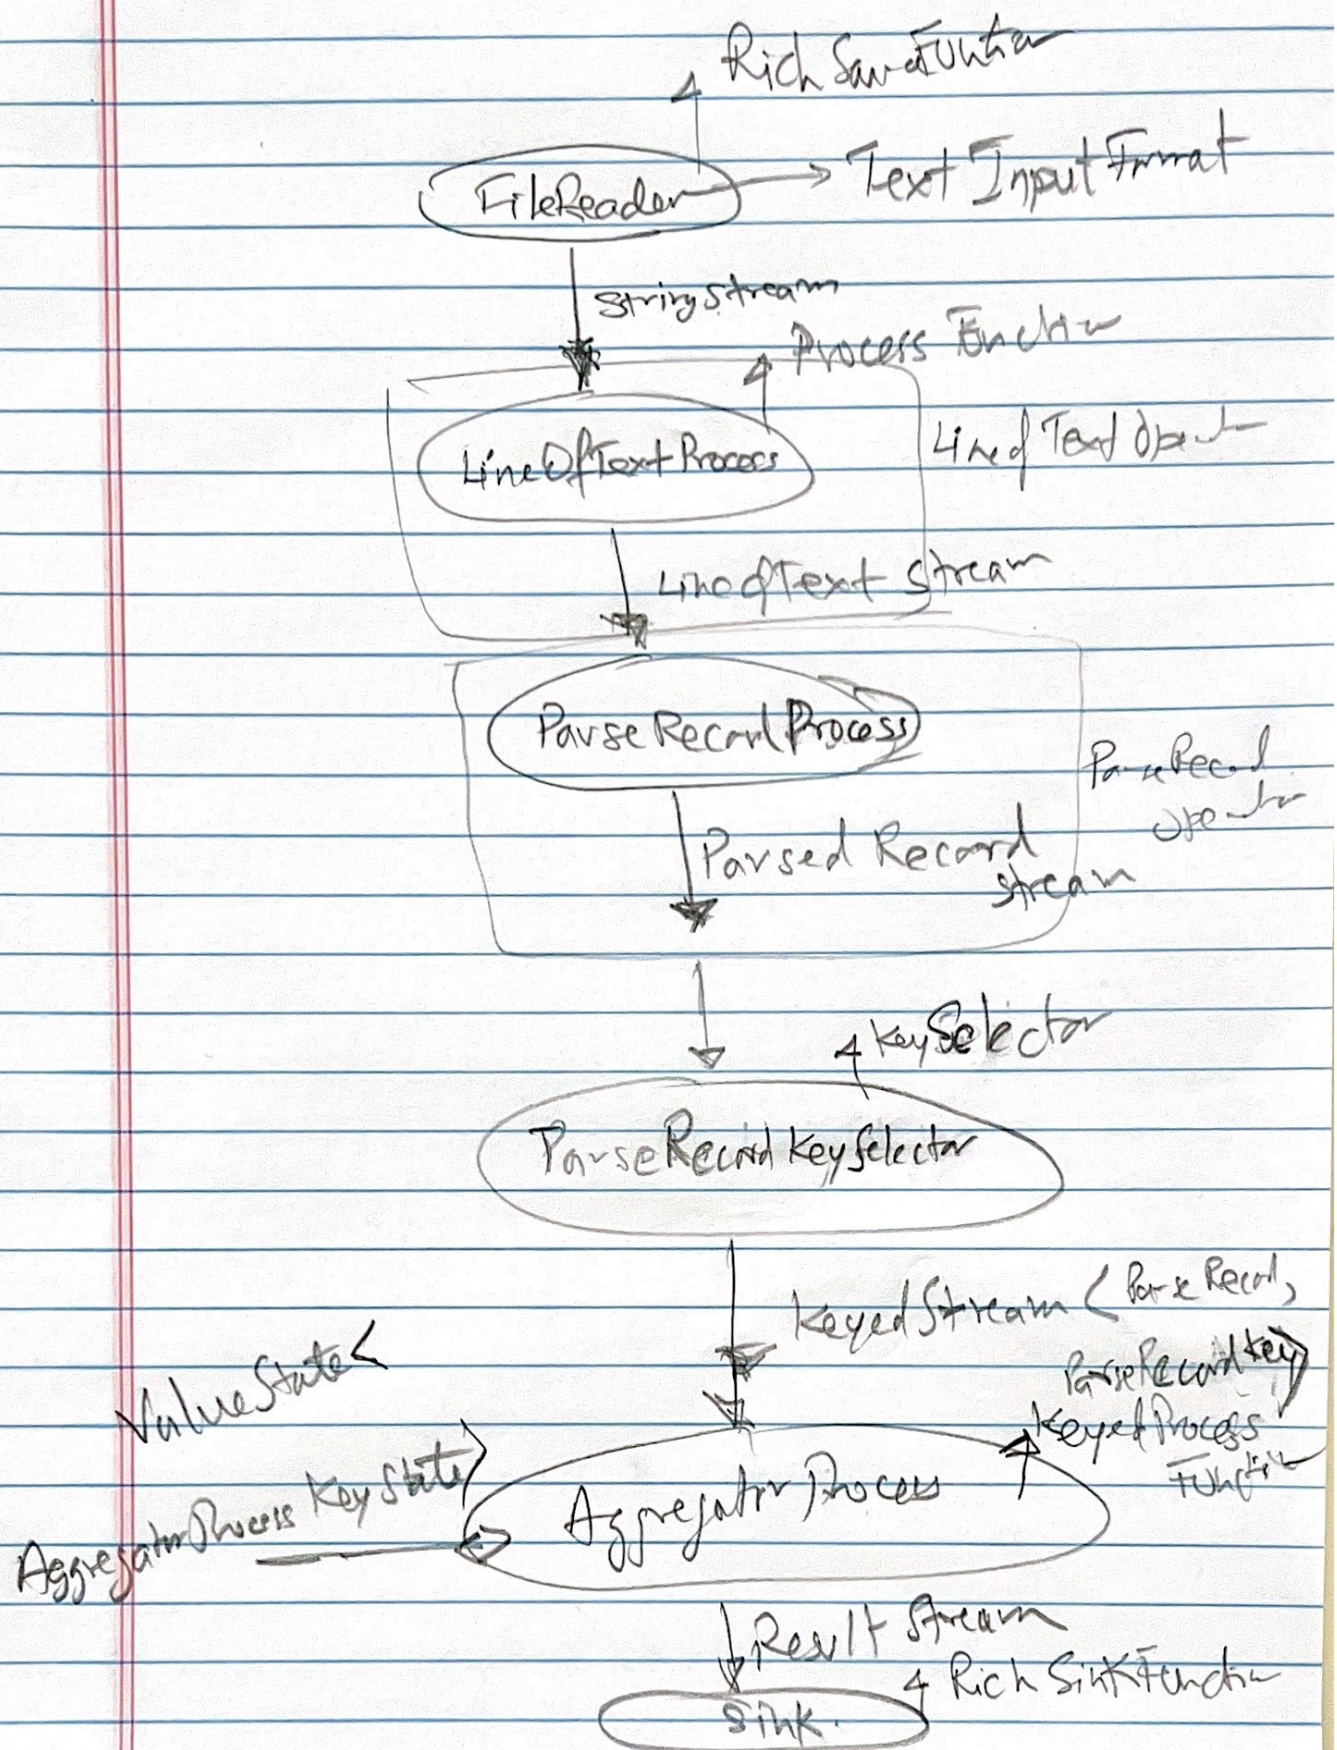 Rich SourceFunction
FileReader
Text InputFormat
String Stream
Process Function
LineOfTextProcess
Line of Text Operator
LineofText Stream
ParseRecordProcess
ParseRecord
Operator
Parsed Record
stream
KeySelector
ParseRecordKeySelector
KeyedStream < ParseRecord,
ParseRecordKey>
ValueState<
AggregatorProcess KeyState>
KeyedProcess
Function
AggregatorProcess
Result Stream
Rich SinkFunction
Sink.